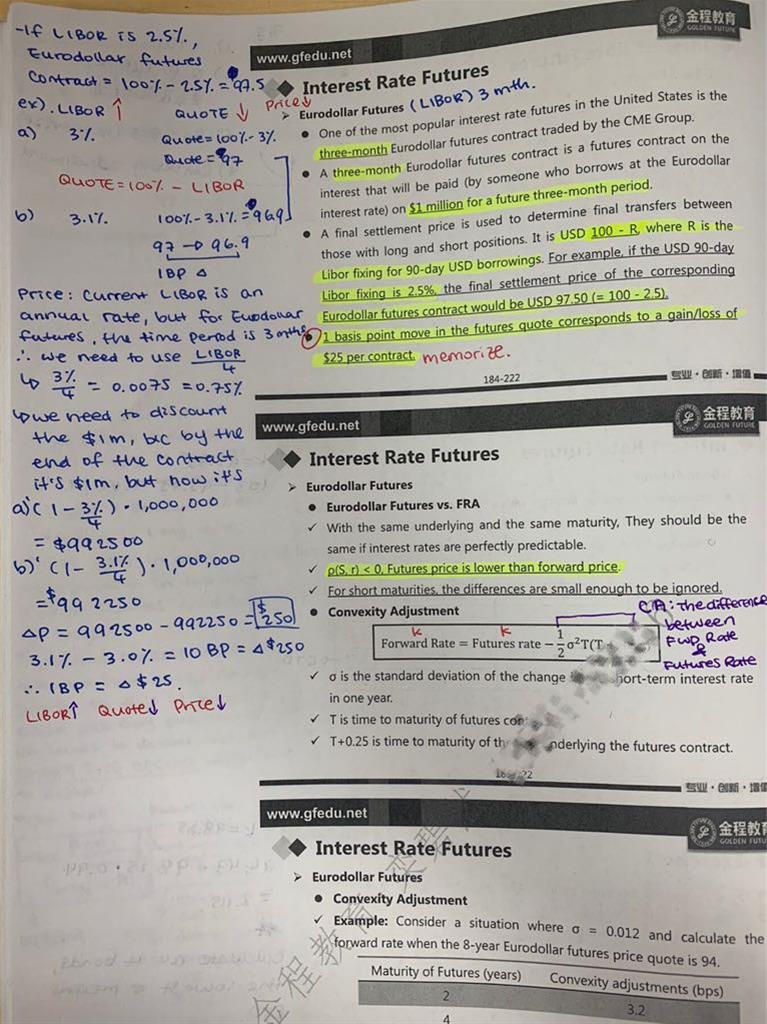 -If LIBOR is 2.5%,
Eurodollar futures
Contract = 100% - 2.5% = 97.5
ex). LIBOR ↑ QUOTE ↓ Price↓
a) 3% Quote = 100% - 3%
Quote = 97
QUOTE = 100% - LIBOR
b) 3.1% 100% - 3.1% = 96.9
97 → 96.9
1BP △
Price: Current LIBOR is an
annual rate, but for Eurodollar
futures, the time period is 3 mths
∴ we need to use LIBOR/4
↳ 3%/4 = 0.0075 = 0.75%
↳ we need to discount
the $1m, b/c by the
end of the contract
it's $1m, but now it's
a)' (1 - 3%/4) · 1,000,000
= $992500
b)' (1 - 3.1%/4) · 1,000,000
= $992250
△P = 992500 - 992250 = $250
3.1% - 3.0% = 10 BP = △$250
∴ 1BP = △$25.
LIBOR↑ Quote↓ Price↓
www.gfedu.net
金程教育
GOLDEN FUTURE
Interest Rate Futures
➢ Eurodollar Futures (LIBOR) 3 mth.
● One of the most popular interest rate futures in the United States is the
three-month Eurodollar futures contract traded by the CME Group.
● A three-month Eurodollar futures contract is a futures contract on the
interest that will be paid (by someone who borrows at the Eurodollar
interest rate) on $1 million for a future three-month period.
● A final settlement price is used to determine final transfers between
those with long and short positions. It is USD 100 - R, where R is the
Libor fixing for 90-day USD borrowings. For example, if the USD 90-day
Libor fixing is 2.5%, the final settlement price of the corresponding
Eurodollar futures contract would be USD 97.50 (= 100 - 2.5).
● 1 basis point move in the futures quote corresponds to a gain/loss of
$25 per contract. memorize.
184-222
专业・创新・增值
www.gfedu.net
金程教育
GOLDEN FUTURE
Interest Rate Futures
➢ Eurodollar Futures
● Eurodollar Futures vs. FRA
✓ With the same underlying and the same maturity, They should be the
same if interest rates are perfectly predictable.
✓ ρ(S, r) < 0, Futures price is lower than forward price.
✓ For short maturities, the differences are small enough to be ignored.
● Convexity Adjustment
CA: The difference
between
Fwd Rate
&
Futures Rate
K K
Forward Rate = Futures rate − 1/2 σ²T(T
✓ σ is the standard deviation of the change short-term interest rate
in one year.
✓ T is time to maturity of futures
✓ T+0.25 is time to maturity of underlying the futures contract.
专业・创新・增值
www.gfedu.net
金程教育
GOLDEN FUTU
Interest Rate Futures
➢ Eurodollar Futures
● Convexity Adjustment
✓ Example: Consider a situation where σ = 0.012 and calculate the
forward rate when the 8-year Eurodollar futures price quote is 94.
Maturity of Futures (years) Convexity adjustments (bps)
2 3.2
4
金程教育